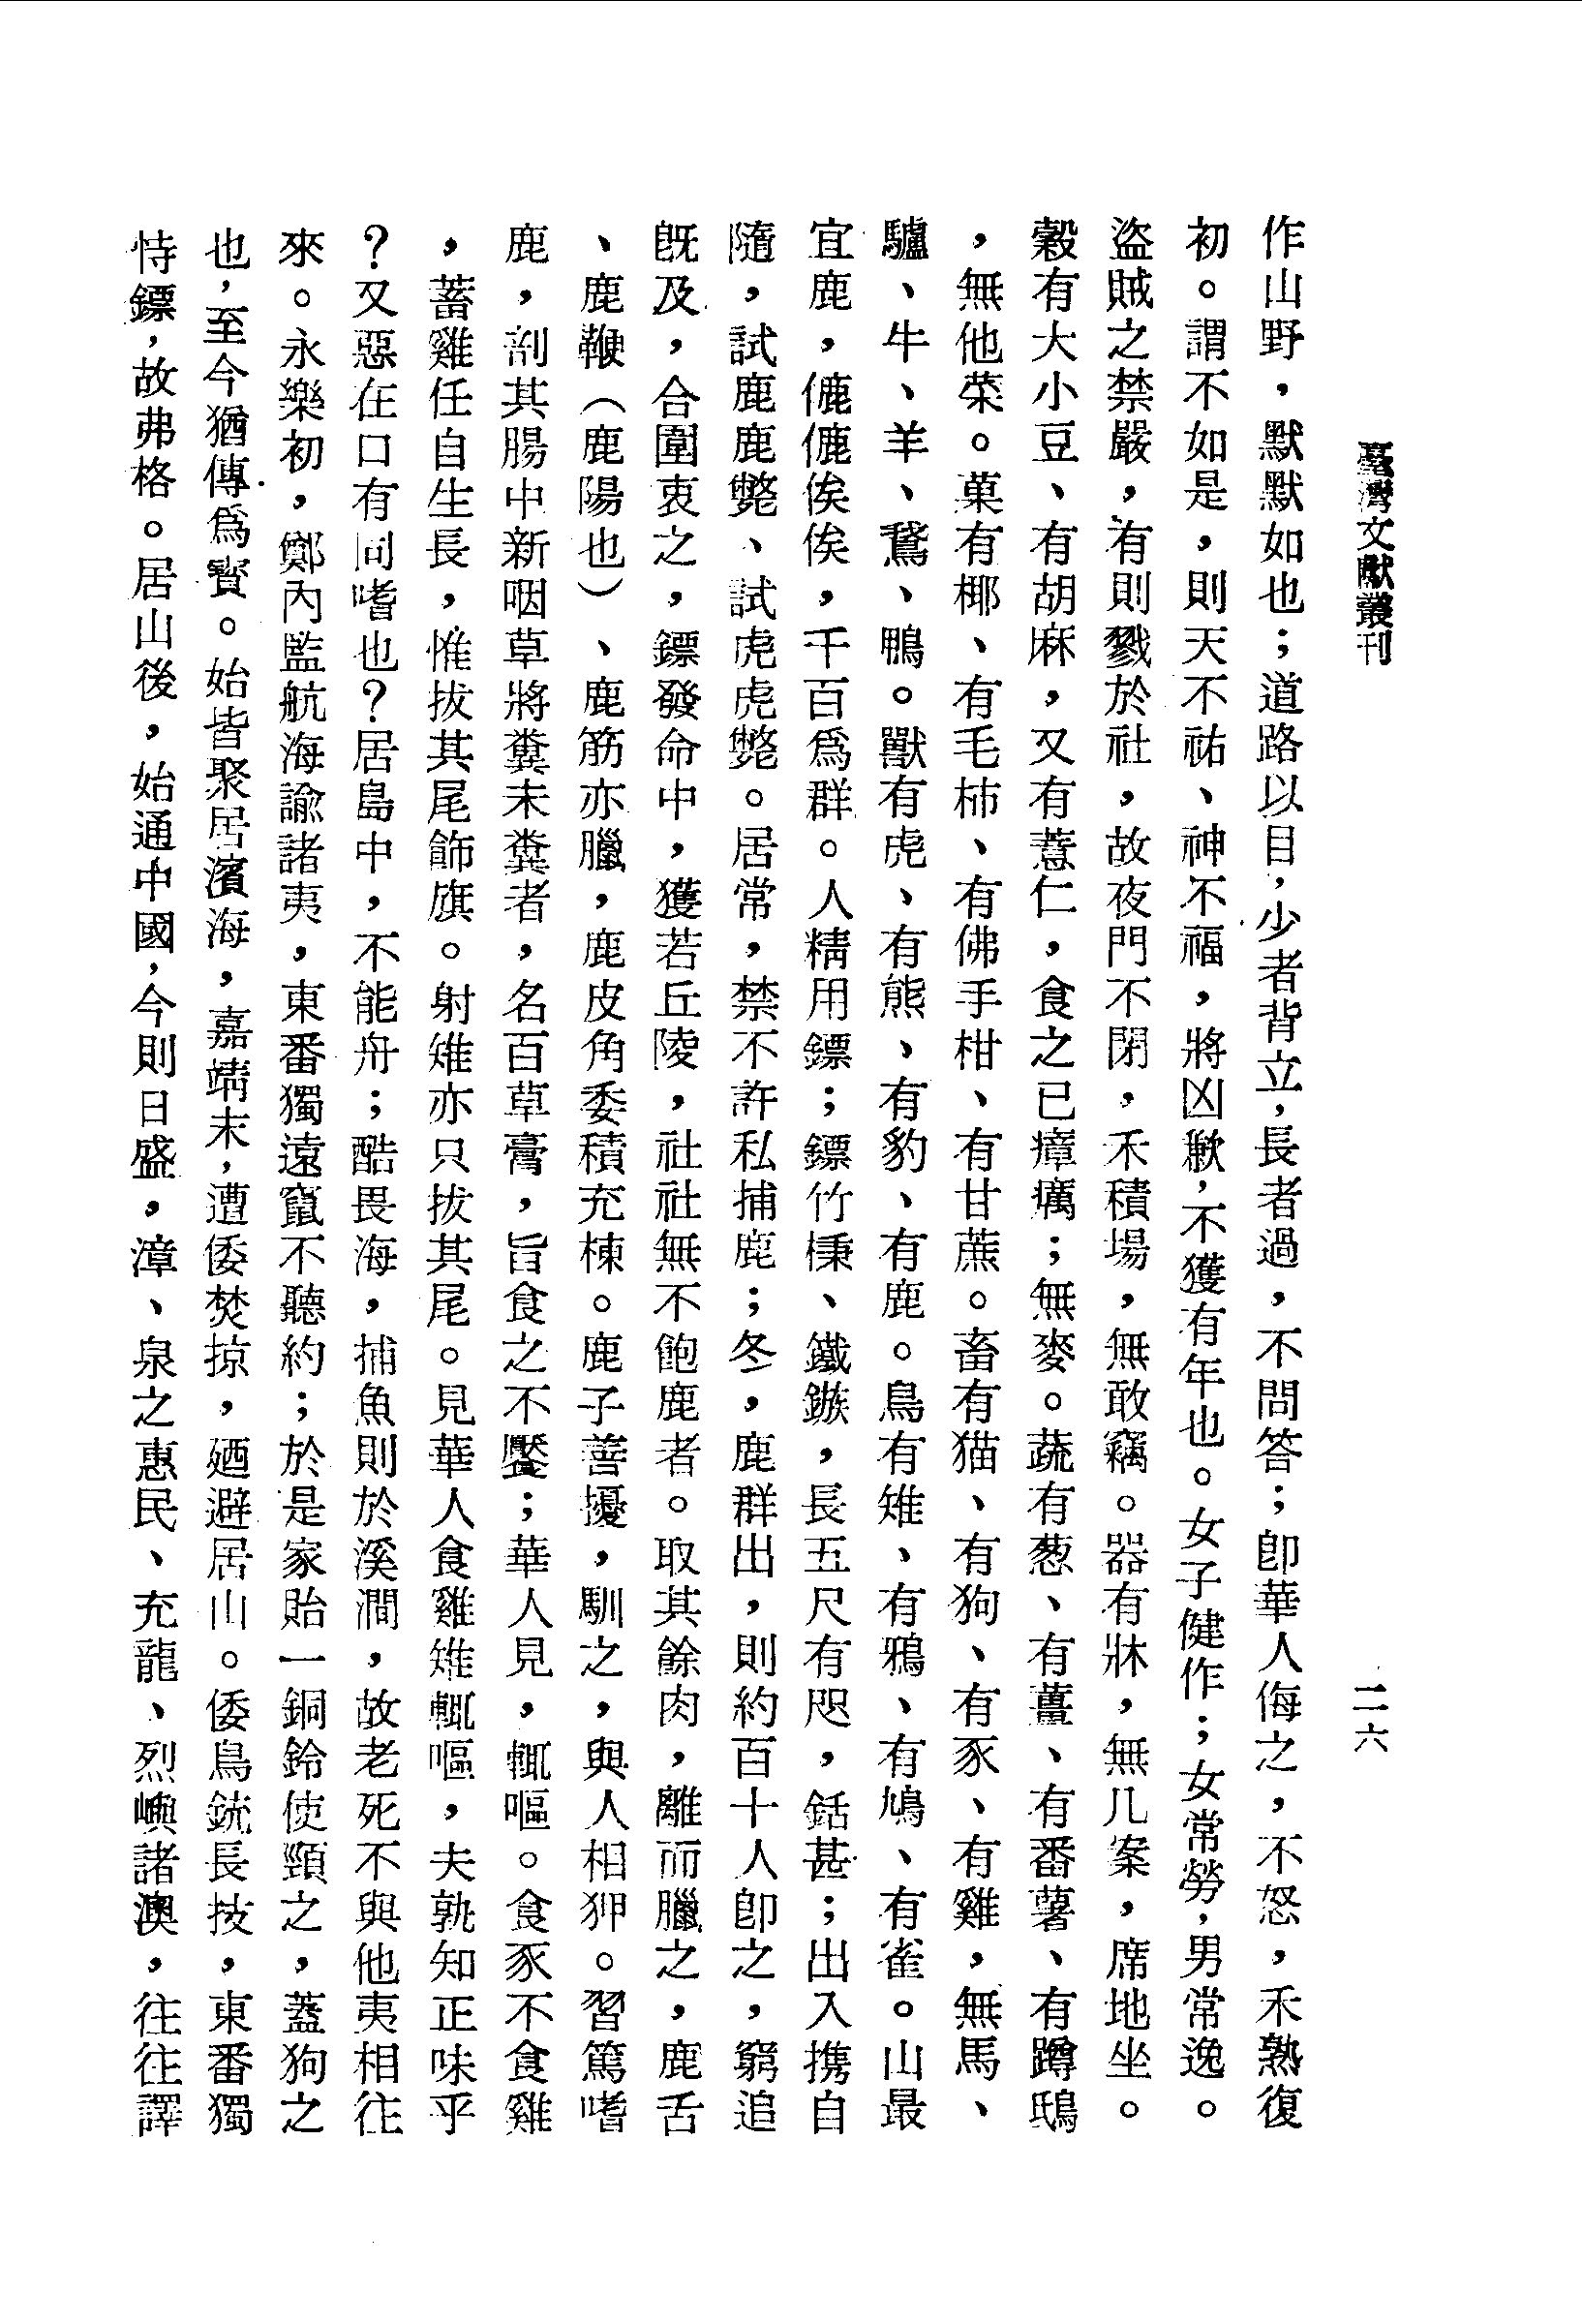 臺灣文獻叢刊
二六
作山野，默默如也；道路以目，少者背立，長者過，不問答；卽華人侮之，不怒，禾熟復
初。謂不如是，則天不祐、神不福，將凶歉，不獲有年也。女子健作；女常勞，男常逸。
盜賊之禁嚴，有則戮於社，故夜門不閉，禾積場，無敢竊。器有牀，無几案，席地坐。
穀有大小豆、有胡麻，又有薏仁，食之已瘴癘；無麥。蔬有葱、有薑、有番薯、有蹲鴟
，無他菜。菓有椰、有毛柿、有佛手柑、有甘蔗。畜有猫、有狗、有豕、有雞，無馬、
驢、牛、羊、鵞、鴨。獸有虎、有熊、有豹、有鹿。鳥有雉、有鴉、有鳩、有雀。山最
宜鹿，儦儦俟俟，千百爲群。人精用鏢；鏢竹棅、鐵鏃，長五尺有咫，銛甚；出入携自
隨，試鹿鹿斃、試虎虎斃。居常，禁不許私捕鹿；冬，鹿群出，則約百十人卽之，窮追
旣及，合圍衷之，鏢發命中，獲若丘陵，社社無不飽鹿者。取其餘肉，離而臘之，鹿舌
、鹿鞭（鹿陽也）、鹿筋亦臘，鹿皮角委積充棟。鹿子善擾，馴之，與人相狎。習篤嗜
鹿，剖其腸中新咽草將糞未糞者，名百草膏，旨食之不饜；華人見，輒嘔。食豕不食雞
，蓄雞任自生長，惟拔其尾飾旗。射雉亦只拔其尾。見華人食雞雉輒嘔，夫孰知正味乎
？又惡在口有同嗜也？居島中，不能舟；酷畏海，捕魚則於溪澗，故老死不與他夷相往
來。永樂初，鄭內監航海諭諸夷，東番獨遠竄不聽約；於是家貽一銅鈴使頸之，蓋狗之
也，至今猶傳爲寶。始皆聚居濱海，嘉靖末，遭倭焚掠，廼避居山。倭鳥銃長技，東番獨
恃鏢，故弗格。居山後，始通中國，今則日盛，漳、泉之惠民、充龍、烈嶼諸澳，往往譯